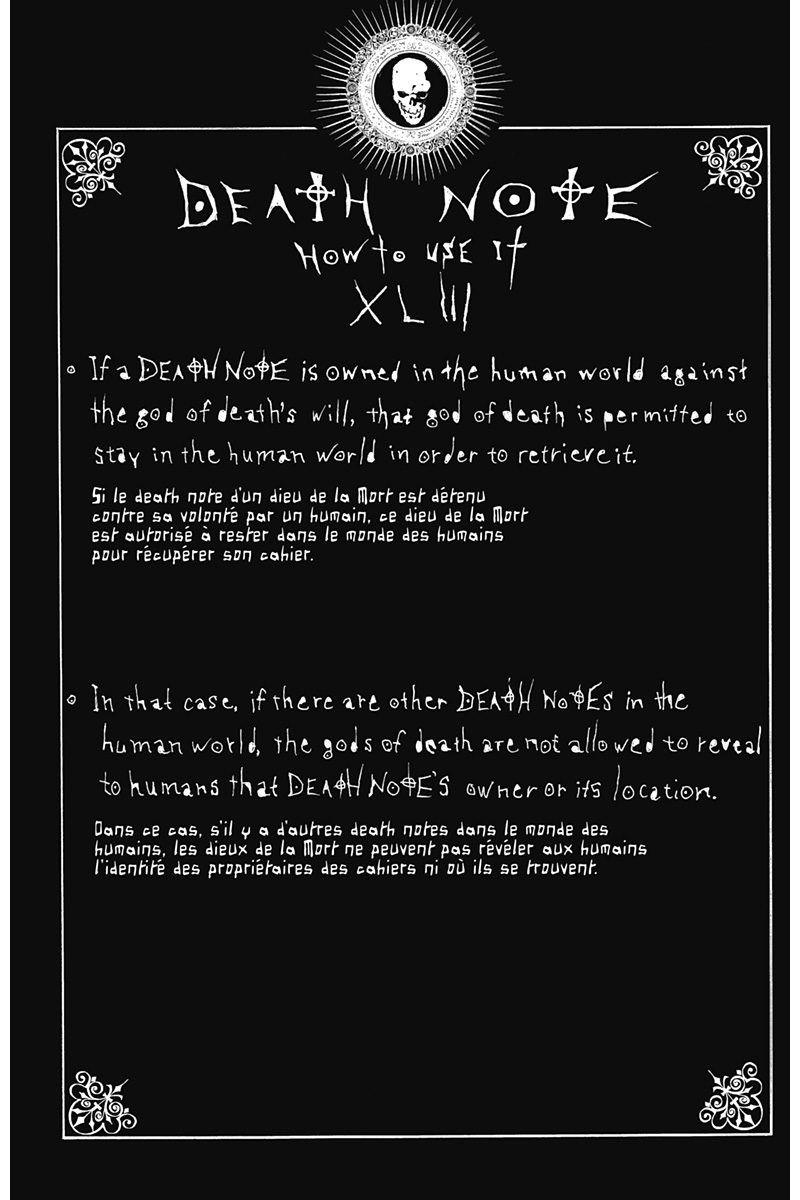 DEATH NOTE
HOW to USE It
XLIII
If a DEATH NOTE is owned in the human world against
the god of death's will, that god of death is permitted to
stay in the human world in order to retrieve it.
Si le death note d'un dieu de la Mort est détenu
contre sa volonté par un humain, ce dieu de la Mort
est autorisé à rester dans le monde des humains
pour récupérer son cahier.
In that case, if there are other DEATH NOTES in the
human world, the gods of death are not allowed to reveal
to humans that DEATH NOTE'S owner or its location.
Dans ce cas, s'il y a d'autres death notes dans le monde des
humains, les dieux de la Mort ne peuvent pas révéler aux humains
l'identité des propriétaires des cahiers ni où ils se trouvent.